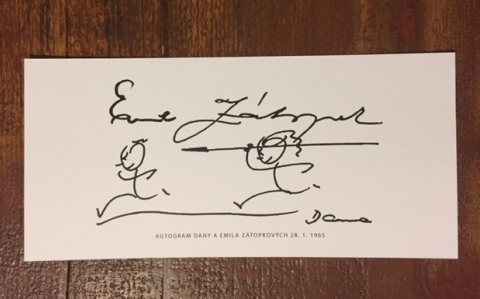 Emil Zátopek
Dana
AUTOGRAM DANY A EMILA ZÁTOPKOVÝCH 28. 1. 1965